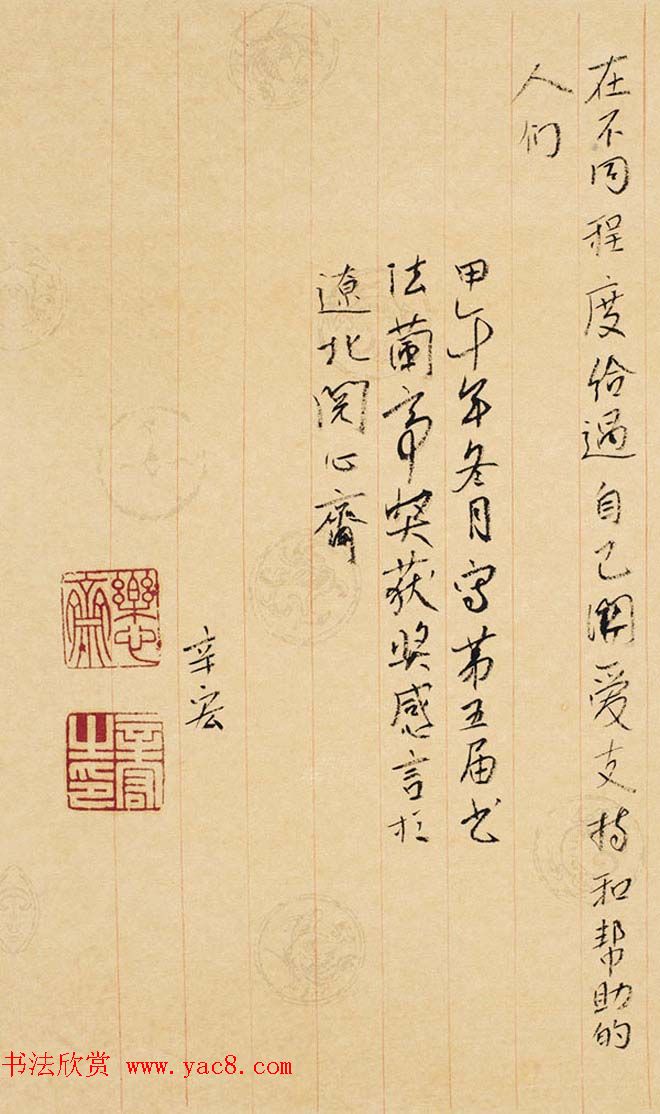 在不同程度给過自己関爱支持和帮助的
人们
甲午年冬月写第五届书
法蘭亭奖获奖感言於
遼北関心齋
辛宏
樂心齋
辛宏之印
书法欣赏 www.yac8.com